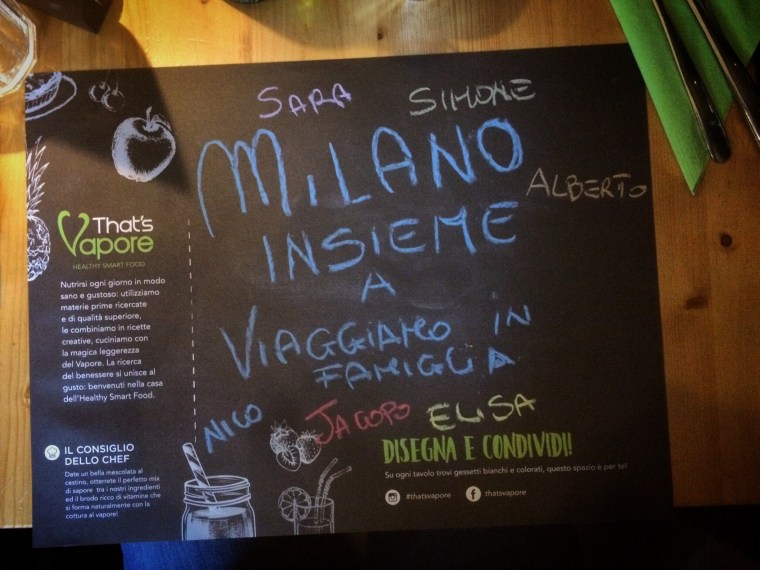 SARA SIMONE
MILANO
ALBERTO
INSIEME
A
VIAGGIAMO IN
FAMIGLIA
NICO JACOPO ELISA
That's
Vapore
HEALTHY SMART FOOD
Nutrirsi ogni giorno in modo
sano e gustoso: utilizziamo
materie prime ricercate
e di qualità superiore,
le combiniamo in ricette
creative, cuciniamo con
la magica leggerezza
del Vapore. La ricerca
del benessere si unisce al
gusto: benvenuti nella casa
dell'Healthy Smart Food.
IL CONSIGLIO
DELLO CHEF
Date un bella mescolata al
cestino, otterrete il perfetto mix
di sapore tra i nostri ingredienti
ed il brodo ricco di vitamine che
si forma naturalmente con la
cottura al vapore!
DISEGNA E CONDIVIDI!
Su ogni tavolo trovi gessetti bianchi e colorati, questo spazio è per te!
#thatsvapore thatsvapore